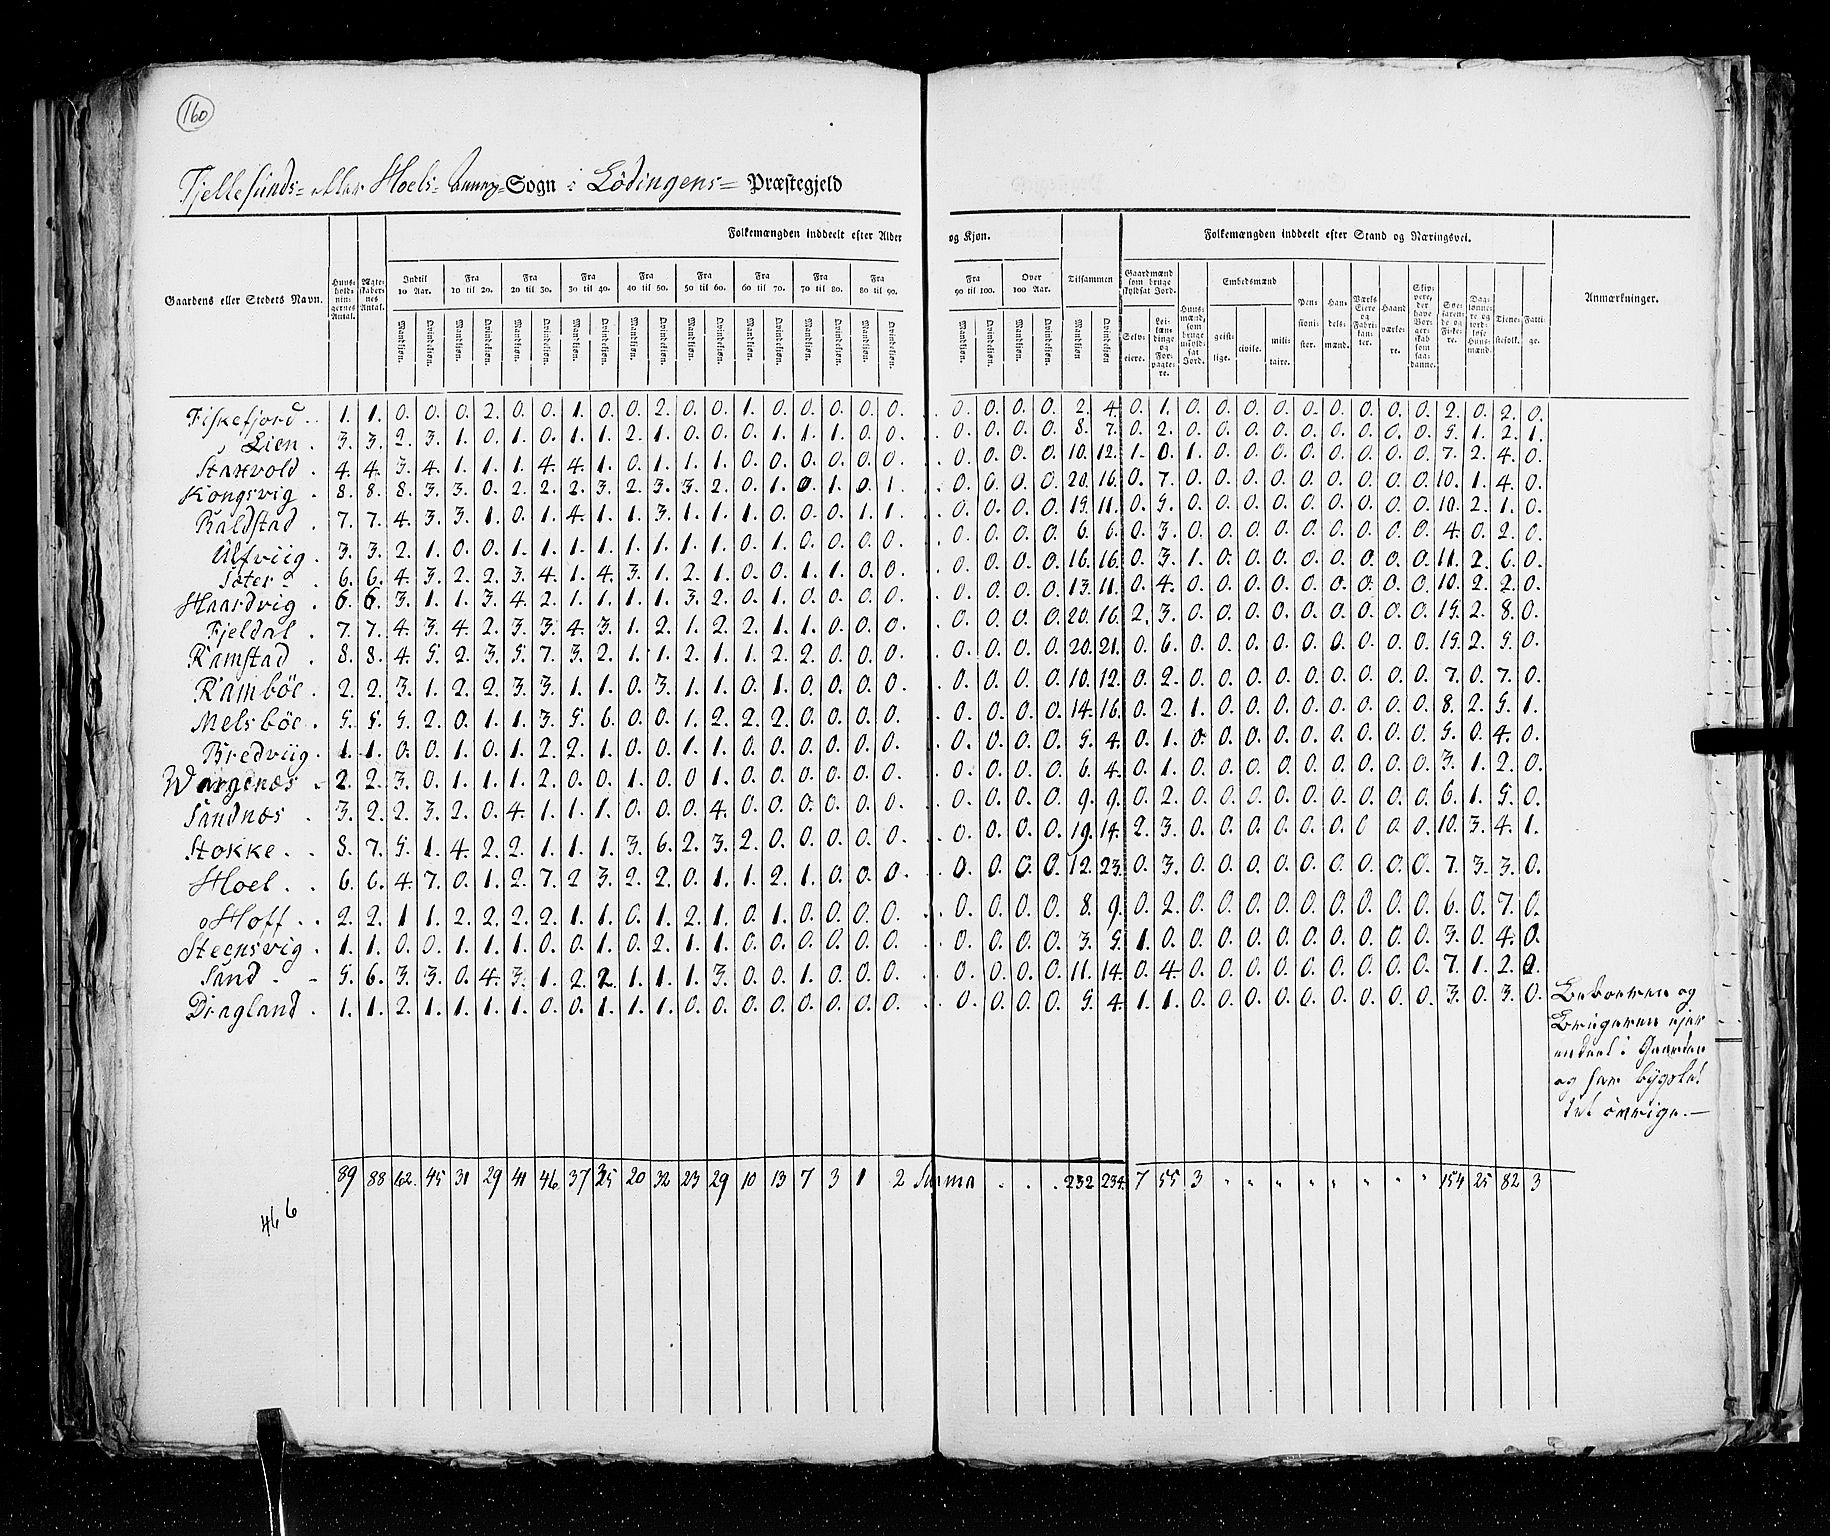 160
Tjellesunds- eller Hoels- Annex-Sogn i Lödingens- Præstegjeld
Folkemængden inddeelt efter Alder og Kjøn. Folkemængden inddeelt efter Stand og Næringsvei.
Gaardens eller Stedets Navn. Huusholdningernes Antal. Ægteskabernes Antal. Indtil 10 Aar. Fra 10 til 20. Fra 20 til 30. Fra 30 til 40. Fra 40 til 50. Fra 50 til 60. Fra 60 til 70. Fra 70 til 80. Fra 80 til 90. Fra 90 til 100. Over 100 Aar. Tilsammen Gaardmænd som bruge skyldsat Jord. Huusmænd, som bruge uskyldsat Jord. Embedsmænd Pensionister. Handelsmænd. Værks Eiere og Fabrikanter. Haandværkere. Skippere, der have Borgerskab som saadanne. Søefarende og Fiskere. Daglønnere og jordløse Huusmænd. Tjenestefolk. Fattige. Anmærkninger.
Mandkjøn. Qvindekjøn. Mandkjøn. Qvindekjøn. Mandkjøn. Qvindekjøn. Mandkjøn. Qvindekjøn. Mandkjøn. Qvindekjøn. Mandkjøn. Qvindekjøn. Mandkjøn. Qvindekjøn. Mandkjøn. Qvindekjøn. Mandkjøn. Qvindekjøn. Mandkjøn. Qvindekjøn. Mandkjøn. Qvindekjøn. Mandkjøn. Qvindekjøn Selveiere. Leilændinge og Forpagtere. geistlige. civile. militaire.
Fiskefjord . . 1. 1. 0. 0. 0. 2. 0. 0. 1. 0. 0. 2. 0. 0. 1. 0. 0. 0. 0. 0. 0. 0. 0. 2. 4. 0. 1. 0. 0. 0. 0. 0. 0. 0. 0. 0. 2. 0. 2. 0.
Lien . 3. 3. 2. 3. 1. 0. 1. 0. 1. 1. 2. 1. 0. 0. 0. 1. 1. 1. 0. 0. 0. 0. 0. 0. 8. 7. 0. 2. 0. 0. 0. 0. 0. 0. 0. 0. 0. 5. 1. 2. 1.
Staxvold . 4. 4. 3. 4. 1. 1. 1. 4. 4. 1. 0. 1. 1. 1. 0. 0. 0. 0. 0. 0. 0. 0. 0. 0. 10. 12. 1. 0. 1. 0. 0. 0. 0. 0. 0. 0. 0. 7. 2. 4. 0.
Kongsvig . 8. 8. 8. 3. 3. 0. 2. 2. 2. 3. 2. 3. 3. 2. 0. 1. 0. 1. 0. 1. 0. 0. 0. 0. 20. 16. 0. 7. 0. 0. 0. 0. 0. 0. 0. 0. 0. 10. 1. 4. 0.
Baldstad . 7. 7. 4. 3. 3. 1. 0. 1. 4. 1. 1. 3. 1. 1. 1. 0. 0. 0. 1. 1. 0. 0. 0. 0. 15. 11. 0. 5. 0. 0. 0. 0. 0. 0. 0. 0. 0. 10. 2. 1. 0.
Ulfviig . 3. 3. 2. 1. 0. 0. 1. 1. 1. 1. 1. 1. 1. 1. 0. 1. 0. 0. 0. 0. 0. 0. 0. 0. 6. 6. 0. 3. 0. 0. 0. 0. 0. 0. 0. 0. 0. 4. 0. 2. 0.
Säter . 6. 6. 4. 3. 2. 2. 3. 4. 1. 4. 3. 1. 2. 1. 0. 0. 1. 1. 0. 0. 0. 0. 0. 0. 16. 16. 0. 3. 1. 0. 0. 0. 0. 0. 0. 0. 0. 11. 2. 6. 0.
Haardvig . 6. 6. 3. 1. 1. 3. 4. 2. 1. 1. 1. 1. 3. 2. 0. 1. 0. 0. 0. 0. 0. 0. 0. 0. 13. 11. 0. 4. 0. 0. 0. 0. 0. 0. 0. 0. 0. 10. 2. 2. 0.
Fjeldal . 7. 7. 4. 3. 4. 2. 3. 3. 4. 3. 1. 2. 1. 2. 2. 1. 1. 0. 0. 0. 0. 0. 0. 0. 20. 16. 2. 3. 0. 0. 0. 0. 0. 0. 0. 0. 0. 15. 2. 8. 0.
Ramstad . 8. 8. 4. 5. 2. 3. 5. 7. 3. 2. 1. 1. 2. 1. 1. 2. 2. 0. 0. 0. 0. 0. 0. 0. 20. 21. 0. 6. 0. 0. 0. 0. 0. 0. 0. 0. 0. 15. 2. 5. 0.
Ramböe . 2. 2. 3. 1. 2. 2. 3. 3. 1. 1. 0. 3. 1. 1. 0. 1. 0. 0. 0. 0. 0. 0. 0. 0. 10. 12. 0. 2. 0. 0. 0. 0. 0. 0. 0. 0. 0. 7. 0. 7. 0.
Melsböe . 5. 5. 5. 2. 0. 1. 1. 3. 5. 6. 0. 0. 1. 2. 2. 2. 0. 0. 0. 0. 0. 0. 0. 0. 14. 16. 0. 2. 1. 0. 0. 0. 0. 0. 0. 0. 0. 8. 2. 5. 1.
Bredviig . 1. 1. 0. 0. 1. 0. 1. 2. 2. 1. 0. 0. 1. 1. 0. 0. 0. 0. 0. 0. 0. 0. 0. 0. 5. 4. 0. 1. 0. 0. 0. 0. 0. 0. 0. 0. 0. 5. 0. 4. 0.
Wargenæs . 2. 2. 3. 0. 1. 1. 1. 2. 0. 0. 1. 0. 0. 1. 0. 0. 0. 0. 0. 0. 0. 0. 0. 0. 6. 4. 0. 1. 0. 0. 0. 0. 0. 0. 0. 0. 0. 3. 1. 2. 0.
Sandnæs . 3. 2. 2. 3. 2. 0. 4. 1. 1. 1. 0. 0. 0. 4. 0. 0. 0. 0. 0. 0. 0. 0. 0. 0. 9. 9. 0. 2. 0. 0. 0. 0. 0. 0. 0. 0. 0. 6. 1. 5. 0.
Stokke . . 8. 7. 5. 1. 4. 2. 2. 1. 1. 1. 3. 6. 2. 3. 2. 0. 0. 0. 0. 0. 0. 0. 0. 0. 19. 14. 2. 3. 0. 0. 0. 0. 0. 0. 0. 0. 0. 10. 3. 4. 1.
Hoel . . 6. 6. 4. 7. 0. 1. 2. 7. 2. 3. 2. 2. 0. 1. 1. 2. 1. 0. 0. 0. 0. 0. 0. 0. 12. 23. 0. 3. 0. 0. 0. 0. 0. 0. 0. 0. 0. 7. 3. 3. 0.
Hoff . . 2. 2. 1. 1. 2. 2. 2. 2. 1. 1. 0. 1. 2. 1. 0. 1. 0. 0. 0. 0. 0. 0. 0. 0. 8. 9. 0. 2. 0. 0. 0. 0. 0. 0. 0. 0. 0. 6. 0. 7. 0.
Steensvig . 1. 1. 0. 0. 1. 1. 1. 0. 0. 1. 0. 2. 1. 1. 0. 0. 0. 0. 0. 0. 0. 0. 0. 0. 3. 5. 1. 0. 0. 0. 0. 0. 0. 0. 0. 0. 0. 3. 0. 4. 0.
Sand . . 5. 6. 3. 3. 0. 4. 3. 1. 2. 2. 1. 1. 1. 3. 0. 0. 1. 0. 0. 0. 0. 0. 0. 0. 11. 14. 0. 4. 0. 0. 0. 0. 0. 0. 0. 0. 0. 7. 1. 2. 0.
Dragland . 1. 1. 2. 1. 1. 1. 1. 0. 0. 1. 1. 1. 0. 0. 0. 0. 0. 0. 0. 0. 0. 0. 0. 0. 5. 4. 1. 1. 0. 0. 0. 0. 0. 0. 0. 0. 0. 3. 0. 3. 0.
Beboeren og
Brugeren ejer
endeel i Gaarden
og har bygslet
det øvrige.—
89 88 62. 45 31 29 41 46 37 35 20 32 23 29 10 13 7 3 1 2 Summa . . . 232 234. 7 55 3 " " " " " " " " 154 25 82 3
466